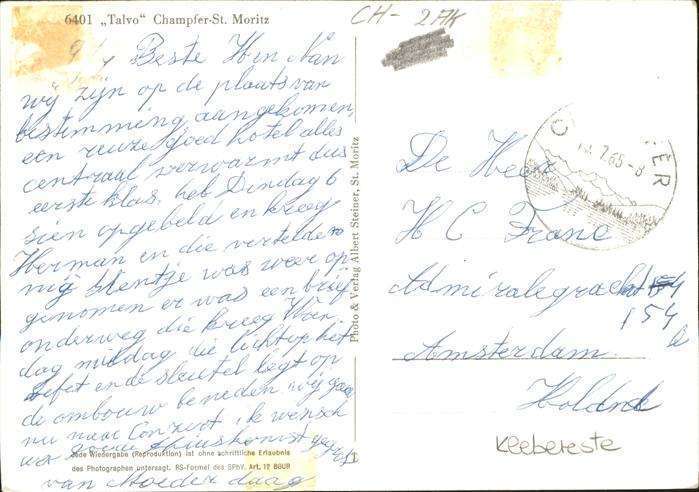 6401 „Talvo" Champfer-St. Moritz
CH - 2AK
Beste Hen Nan
wij zijn op de plaats van
bestemming aangekomen,
een reuze goed hotel alles
centraal verwarmt dus
eerste klas, heb Dinsdag 6
sien opgebeld en kreeg
Herman en die vertelde
mij Hentje was weer op
genomen er was een brief
onderweg die kreeg Woen
dag middag die
en de sleutel legt op
de ombouw beneden wij gaan
nu naar Conzert, ik wensch
van Moeder daag
Photo & Verlag Albert Steiner, St. Moritz
Jede Wiedergabe (Reproduktion) ist ohne schriftliche Erlaubnis
des Photographen untersagt. RS-Formel des SPhV. Art. 12 BGUR
ER
7.65-8
De Heer
H C Franc
Admiralegracht
154
Amsterdam
Holdnd
Kleebereste